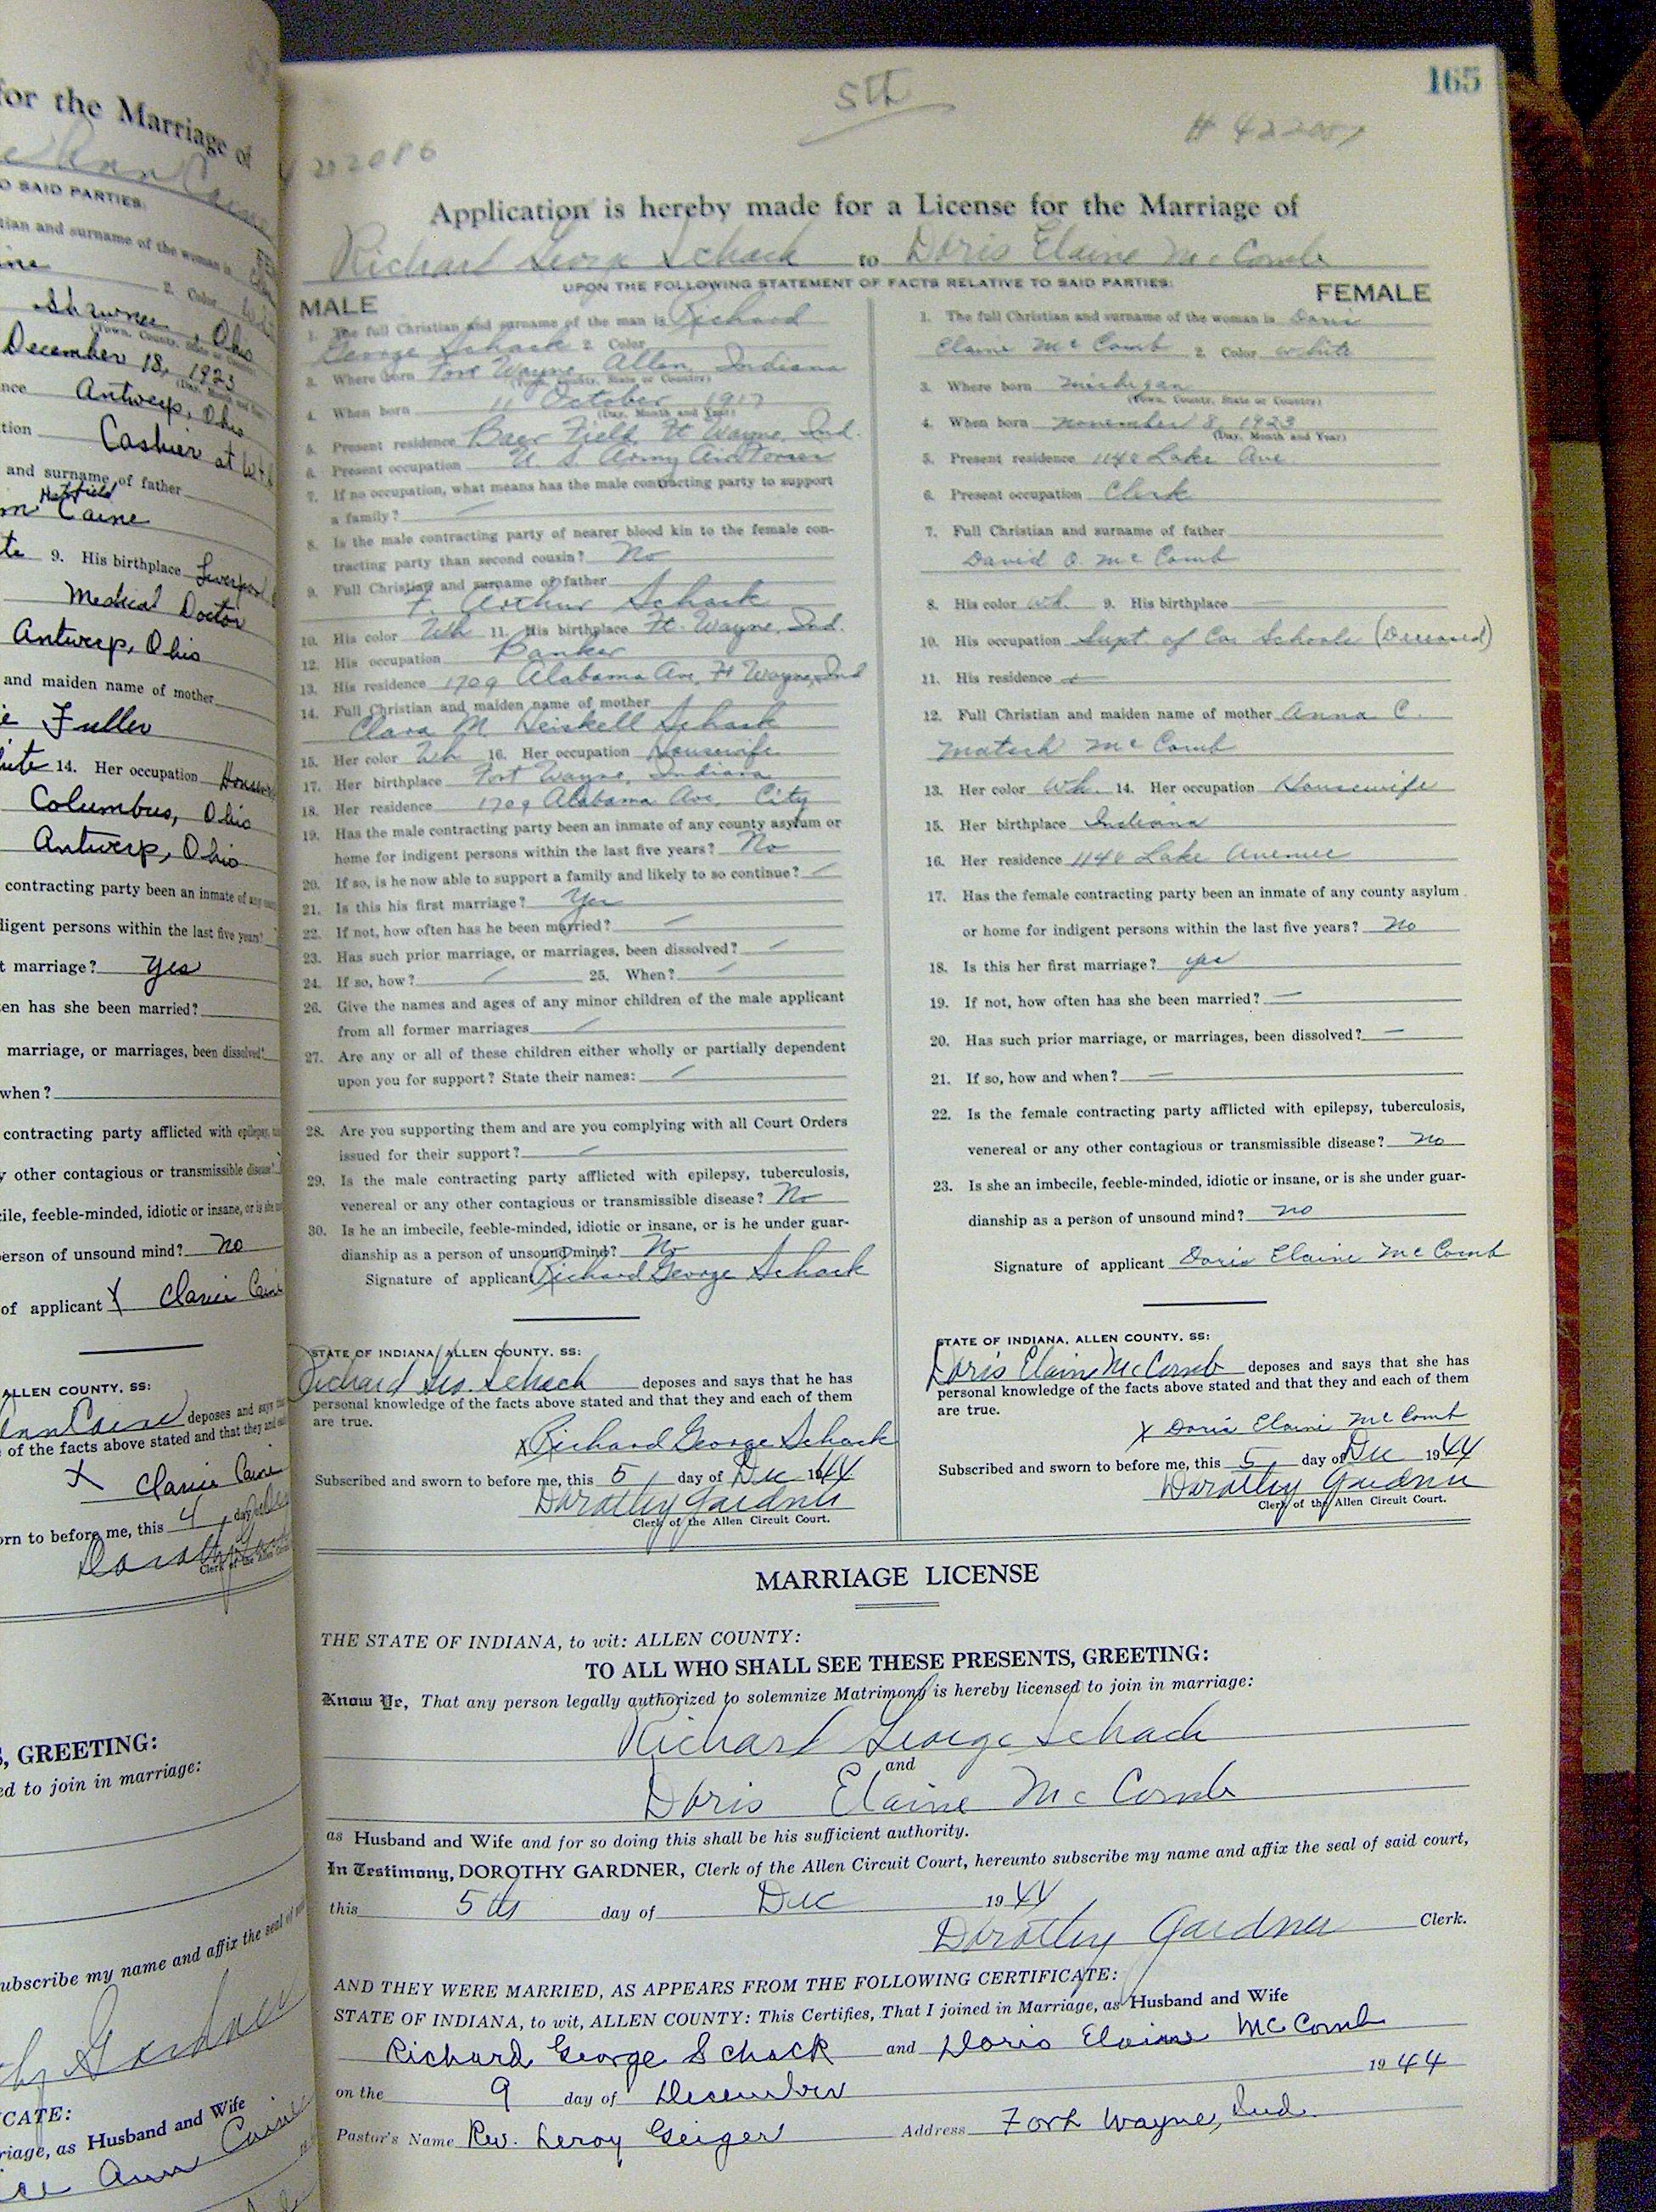 for the Marriage of
O SAID PARTIES:
tian and surname of the woman is
ine
2. Color
Shawnee, Ohio
(Town, County, State or Country)
December 18, 1923
(Day, Month and Year)
nce Antwerp, Ohio
tion Cashier at
and surname of father
Hatfield
Caine
te 9. His birthplace
Medical Doctor
Antwerp, Ohio
and maiden name of mother
ie Fuller
ite 14. Her occupation
Columbus, Ohio
Antwerp, Ohio
contracting party been an inmate of any
digent persons within the last five years?
t marriage? yes
en has she been married?
marriage, or marriages, been dissolved?
when?
contracting party afflicted with epilepsy,
y other contagious or transmissible disease?
cile, feeble-minded, idiotic or insane, or is she
person of unsound mind? No
of applicant X
ALLEN COUNTY, SS:
deposes and says
of the facts above stated and that they and
X
orn to before me, this 4 day
Clerk of the Allen
S, GREETING:
ed to join in marriage:
ubscribe my name and affix the seal of
CATE:
riage, as Husband and Wife
Ann Caine
165
5th
22086
Application is hereby made for a License for the Marriage of
Richard George Schack to Doris Elaine McComb
UPON THE FOLLOWING STATEMENT OF FACTS RELATIVE TO SAID PARTIES:
MALE
1. The full Christian and surname of the man is Richard
George Schack 2. Color
3. Where born Fort Wayne, Allen, Indiana
(Town, County, State or Country)
4. When born 11 October 1917
(Day, Month and Year)
5. Present residence Baer Field, Ft Wayne, Ind.
6. Present occupation U. S. Army Air Forces
7. If no occupation, what means has the male contracting party to support
a family? —
8. Is the male contracting party of nearer blood kin to the female con-
tracting party than second cousin? No
9. Full Christian and surname of father
F. Arthur Schack
10. His color Wh 11. His birthplace Ft. Wayne, Ind.
12. His occupation Banker
13. His residence 1709 Alabama Ave, Ft Wayne, Ind
14. Full Christian and maiden name of mother
Clara M. Heiskell Schack
15. Her color Wh 16. Her occupation Housewife
17. Her birthplace Fort Wayne, Indiana
18. Her residence 1709 Alabama Ave. City
19. Has the male contracting party been an inmate of any county asylum or
home for indigent persons within the last five years? No
20. If so, is he now able to support a family and likely to so continue? —
21. Is this his first marriage? Yes
22. If not, how often has he been married? —
23. Has such prior marriage, or marriages, been dissolved? —
24. If so, how? — 25. When? —
26. Give the names and ages of any minor children of the male applicant
from all former marriages —
27. Are any or all of these children either wholly or partially dependent
upon you for support? State their names: —
28. Are you supporting them and are you complying with all Court Orders
issued for their support? —
29. Is the male contracting party afflicted with epilepsy, tuberculosis,
venereal or any other contagious or transmissible disease? No
30. Is he an imbecile, feeble-minded, idiotic or insane, or is he under guar-
dianship as a person of unsound mind? No
Signature of applicant Richard George Schack
STATE OF INDIANA, ALLEN COUNTY, SS:
Richard Geo. Schack deposes and says that he has
personal knowledge of the facts above stated and that they and each of them
are true.
X Richard George Schack
Subscribed and sworn to before me, this 5 day of Dec 1944
Dorothy Gardner
Clerk of the Allen Circuit Court.
FEMALE
1. The full Christian and surname of the woman is Doris
Elaine McComb 2. Color white
3. Where born Michigan
(Town, County, State or Country)
4. When born November 8, 1923
(Day, Month and Year)
5. Present residence 1140 Lake Ave.
6. Present occupation Clerk
7. Full Christian and surname of father
David O. McComb
8. His color Wh. 9. His birthplace —
10. His occupation Supt. of Co. Schools (Deceased)
11. His residence —
12. Full Christian and maiden name of mother Anna C.
Matsch McComb
13. Her color Wh. 14. Her occupation Housewife
15. Her birthplace Indiana
16. Her residence 1140 Lake Avenue
17. Has the female contracting party been an inmate of any county asylum
or home for indigent persons within the last five years? No
18. Is this her first marriage? yes
19. If not, how often has she been married? —
20. Has such prior marriage, or marriages, been dissolved? —
21. If so, how and when? —
22. Is the female contracting party afflicted with epilepsy, tuberculosis,
venereal or any other contagious or transmissible disease? No
23. Is she an imbecile, feeble-minded, idiotic or insane, or is she under guar-
dianship as a person of unsound mind? No
Signature of applicant Doris Elaine McComb
STATE OF INDIANA, ALLEN COUNTY, SS:
Doris Elaine McComb deposes and says that she has
personal knowledge of the facts above stated and that they and each of them
are true.
X Doris Elaine McComb
Subscribed and sworn to before me, this 5 day of Dec 1944
Dorothy Gardner
Clerk of the Allen Circuit Court.
MARRIAGE LICENSE
THE STATE OF INDIANA, to wit: ALLEN COUNTY:
TO ALL WHO SHALL SEE THESE PRESENTS, GREETING:
Know Ye, That any person legally authorized to solemnize Matrimony is hereby licensed to join in marriage:
Richard George Schack
and
Doris Elaine McComb
as Husband and Wife and for so doing this shall be his sufficient authority.
In Testimony, DOROTHY GARDNER, Clerk of the Allen Circuit Court, hereunto subscribe my name and affix the seal of said court,
this 5th day of Dec 1944
Dorothy Gardner Clerk.
AND THEY WERE MARRIED, AS APPEARS FROM THE FOLLOWING CERTIFICATE:
STATE OF INDIANA, to wit, ALLEN COUNTY: This Certifies, That I joined in Marriage, as Husband and Wife
Richard George Schack and Doris Elaine McComb
on the 9 day of December 1944
Pastor's Name Rev. Leroy Geiger Address Fort Wayne, Ind.